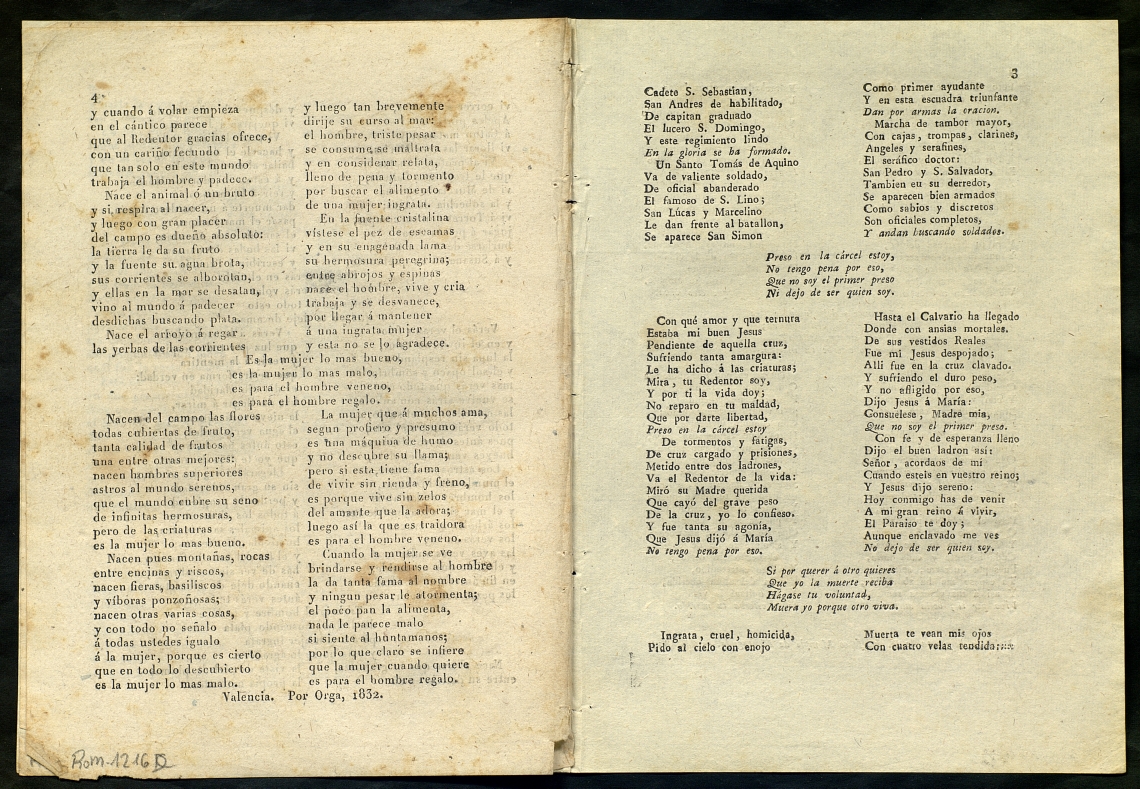 4
y cuando á volar empieza
en el cántico parece
que al Redentor gracias ofrece,
con un cariño fecundo
que tan solo en este mundo
trabaja el hombre y padece.
Nace el animal ó un bruto
y si respira al nacer,
y luego con gran placer
del campo es dueño absoluto:
la tierra le da su fruto
y la fuente su agua brota,
sus corrientes se alborotan,
y ellas en la mar se desatan,
vino al mundo á padecer
desdichas buscando plata.
Nace el arroyo á regar
las yerbas de las corrientes
y luego tan brevemente
dirije su curso al mar:
el hombre, triste pesar
se consume, se maltrata
y en considerar relata,
lleno de pena y tormento
por buscar el alimento
de una mujer ingrata.
En la fuente cristalina
vístese el pez de escamas
y en su enagénada lama
su hermosura peregrina;
entre abrojos y espinas
nace el hombre, vive y cria
trabaja y se desvanece,
por llegar á mantener
á una ingrata mujer
y esta no se lo agradece.
Es la mujer lo mas bueno,
es la mujer lo mas malo,
es para el hombre veneno,
es para el hombre regalo.
Nacen del campo las flores
todas cubiertas de fruto,
tanta calidad de frutos
una entre otras mejores:
nacen hombres superiores
astros al mundo serenos,
que el mundo cubre su seno
de infinitas hermosuras,
pero de las criaturas
es la mujer lo mas bueno.
Nacen pues montañas, rocas
entre encinas y riscos,
nacen fieras, basiliscos
y víboras ponzoñosas;
nacen otras varias cosas,
y con todo no señalo
á todas ustedes igualo
á la mujer, porque es cierto
que en todo lo descubierto
es la mujer lo mas malo.
La mujer que á muchos ama,
segun profiero y presumo
es una máquina de humo
y no descubre su llama;
pero si esta tiene fama
de vivir sin rienda y freno,
es porque vive sin zelos
del amante que la adora;
luego así la que es traidora
es para el hombre veneno.
Cuando la mujer se ve
brindarse y rendirse al hombre
la da tanta fama al nombre
y ningun pesar le atormenta;
el poco pan la alimenta,
nada le parece malo
si siente al huntamanos;
por lo que claro se infiere
que la mujer cuando quiere
es para el hombre regalo.
Valencia. Por Orga, 1832.
Rom. 1216 D
3
Cadete S. Sebastian,
San Andres de habilitado,
De capitan graduado
El lucero S. Domingo,
Y este regimiento lindo
En la gloria se ha formado.
Un Santo Tomás de Aquino
Va de valiente soldado,
De oficial abanderado
El famoso de S. Lino;
San Lúcas y Marcelino
Le dan frente al batallon,
Se aparece San Simon
Como primer ayudante
Y en esta escuadra triunfante
Dan por armas la oracion.
Marcha de tambor mayor,
Con cajas, trompas, clarines,
Angeles y serafines,
El seráfico doctor:
San Pedro y S. Salvador,
Tambien eu su derredor,
Se aparecen bien armados
Como sabios y discretos
Son oficiales completos,
Y andan buscando soldados.
Preso en la cárcel estoy,
No tengo pena por eso,
Que no soy el primer preso
Ni dejo de ser quien soy.
Con qué amor y que ternura
Estaba mi buen Jesus
Pendiente de aquella cruz,
Sufriendo tanta amargura:
Le ha dicho á las criaturas;
Mira, tu Redentor soy,
Y por ti la vida doy;
No reparo en tu maldad,
Que por darte libertad,
Preso en la cárcel estoy
De tormentos y fatigas,
De cruz cargado y prisiones,
Metido entre dos ladrones,
Va el Redentor de la vida:
Miró su Madre querida
Que cayó del grave peso
De la cruz, yo lo confieso.
Y fue tanta su agonía,
Que Jesus dijó á María
No tengo pena por eso.
Hasta el Calvario ha llegado
Donde con ansias mortales.
De sus vestidos Reales
Fue mi Jesus despojado;
Alli fue en la cruz clavado.
Y sufriendo el duro peso,
Y no afligido por eso,
Dijo Jesús á María:
Consuelese, Madre mia,
Que no soy el primer preso.
Con fe y de esperanza lleno
Dijo el buen ladron asi:
Señor, acordaos de mi
Cuando esteis en vuestro reino;
Y Jesus dijo sereno:
Hoy conmigo has de venir
A mi gran reino á vivir,
El Paraiso te doy;
Aunque enclavado me ves
No dejo de ser quien soy.
Si por querer á otro quieres
Que yo la muerte reciba
Hágase tu voluntad,
Muera yo porque otro viva.
Ingrata, cruel, homicida,
Pido al cielo con enojo
Muerta te vean mis ojos
Con cuatro velas tendida;